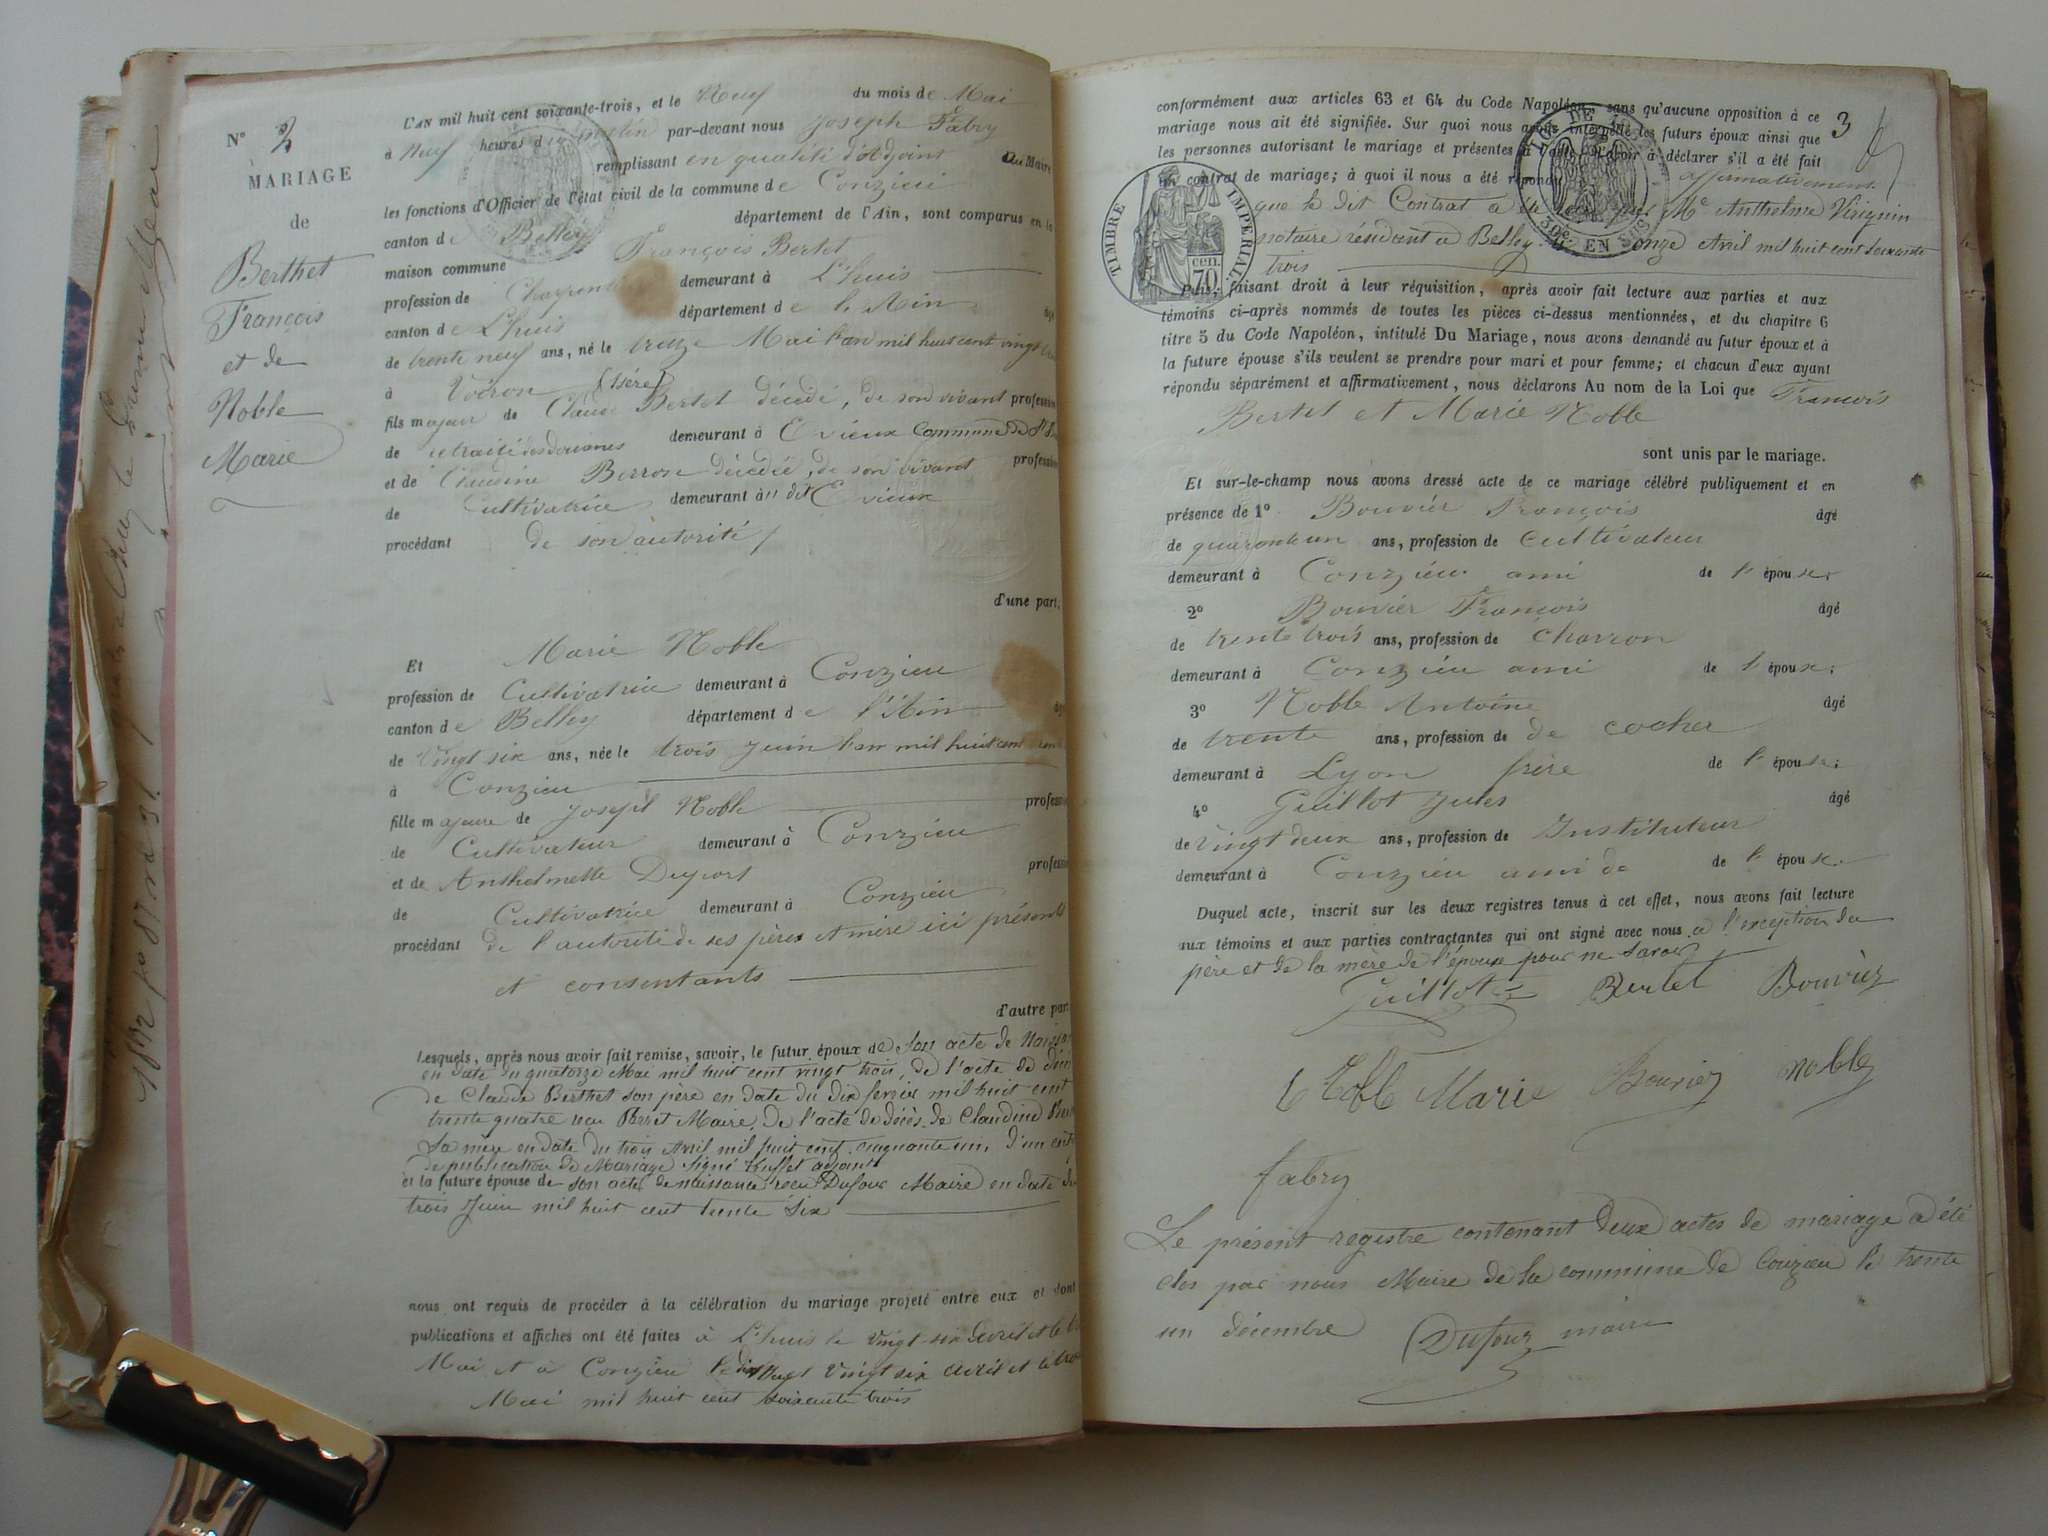 N° 2
MARIAGE
de
Berthet
François
et de
Noble
Marie
L'AN mil huit cent soixante-trois, et le Neuf du mois de Mai
à Neuf heures du matin par-devant nous Joseph Fabry
remplissant en qualité d'Adjoint au Maire
les fonctions d'Officier de l'état civil de la commune de Conzieu
canton de Belley département de l'Ain, sont comparus en la
maison commune François Bertet
profession de Charpentier demeurant à L'huis
canton de L'huis département de le Ain âgé
de trente neuf ans, né le treize Mai l'an mil huit cent vingt
à Voiron (Isère)
fils majeur de Claude Bertet décédé, de son vivant profession
de retraité des douanes demeurant à Evieux Commune de St
et de Claudine décédée, de son vivant profession
de Cultivatrice demeurant à dit Evieux
procédant de son autorité
d'une part,
Et Marie Noble
profession de Cultivatrice demeurant à Conzieu
canton de Belley département de l'Ain âgé
de Vingt six ans, née le trois Juin l'an mil huit cent
à Conzieu
fille majeure de Joseph Noble profession
de Cultivateur demeurant à Conzieu
et de Anthelmette Duport profession
de Cultivatrice demeurant à Conzieu
procédant de l'autorité de ses père et mère ici présents
et consentants
d'autre part
Lesquels, après nous avoir fait remise, savoir, le futur époux de son acte de
en date du quatorze Mai mil huit cent vingt trois, de l'acte de
de Claude Berthet son père en date du dix mil huit cent
trente quatre Maire, de l'acte de décès de Claudine
sa mère en date du trois Avril mil huit cent cinquante un, d'un
de publication de Mariage signé adjoint
et la future épouse de son acte de naissance reçu Dufour Maire en date du
trois Juin mil huit cent trente six
nous ont requis de procéder à la célébration du mariage projeté entre eux et dont
publications et affiches ont été faites à L'huis le vingt six avril et le
Mai et à Conzieu le vingt six avril et le trois
Mai mil huit cent soixante trois
conformément aux articles 63 et 64 du Code Napoléon, sans qu'aucune opposition à ce
3
mariage nous ait été signifiée. Sur quoi nous avons interpellé les futurs époux ainsi que
les personnes autorisant le mariage et présentes à l'acte, d'avoir à déclarer s'il a été fait
un contrat de mariage; à quoi il nous a été répondu affirmativement
que le dit Contrat a été reçu par Me Anthelme Virignin
notaire résidant à Belley le onze Avril mil huit cent soixante
trois
TIMBRE IMPÉRIAL
cen.
70
EN SUS
Puis, faisant droit à leur réquisition, après avoir fait lecture aux parties et aux
témoins ci-après nommés de toutes les pièces ci-dessus mentionnées, et du chapitre 6
titre 5 du Code Napoléon, intitulé Du Mariage, nous avons demandé au futur époux et à
la future épouse s'ils veulent se prendre pour mari et pour femme; et chacun d'eux ayant
répondu séparément et affirmativement, nous déclarons Au nom de la Loi que François
Bertet et Marie Noble
sont unis par le mariage.
Et sur-le-champ nous avons dressé acte de ce mariage célébré publiquement et en
présence de 1° Bouvier François âgé
de quarante un ans, profession de Cultivateur
demeurant à Conzieu ami de l'épouse.
2° Bouvier François âgé
de trente trois ans, profession de Charron
demeurant à Conzieu ami de l'épouse;
3° Noble Antoine âgé
de trente ans, profession de de cocher
demeurant à Lyon frère de l'épouse;
4° Guillot Jules âgé
de vingt deux ans, profession de Instituteur
demeurant à Conzieu ami de de l'épouse.
Duquel acte, inscrit sur les deux registres tenus à cet effet, nous avons fait lecture
aux témoins et aux parties contractantes qui ont signé avec nous à l'exception du
père et de la mère de l'épouse pour ne savoir
Guillot Bertet Bouvier
Noble Marie Bouvier noble
fabry
Le présent registre contenant deux actes de mariage a été
clos par nous Maire de la commune de Conzieu le trente
un décembre Dufour maire